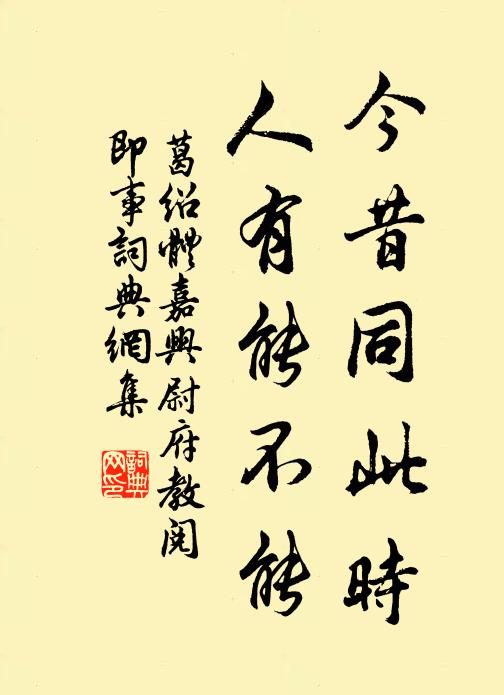 今昔同此時
人有能不能
葛紹體嘉興尉府教閱
即事詞典網集
詞典网印